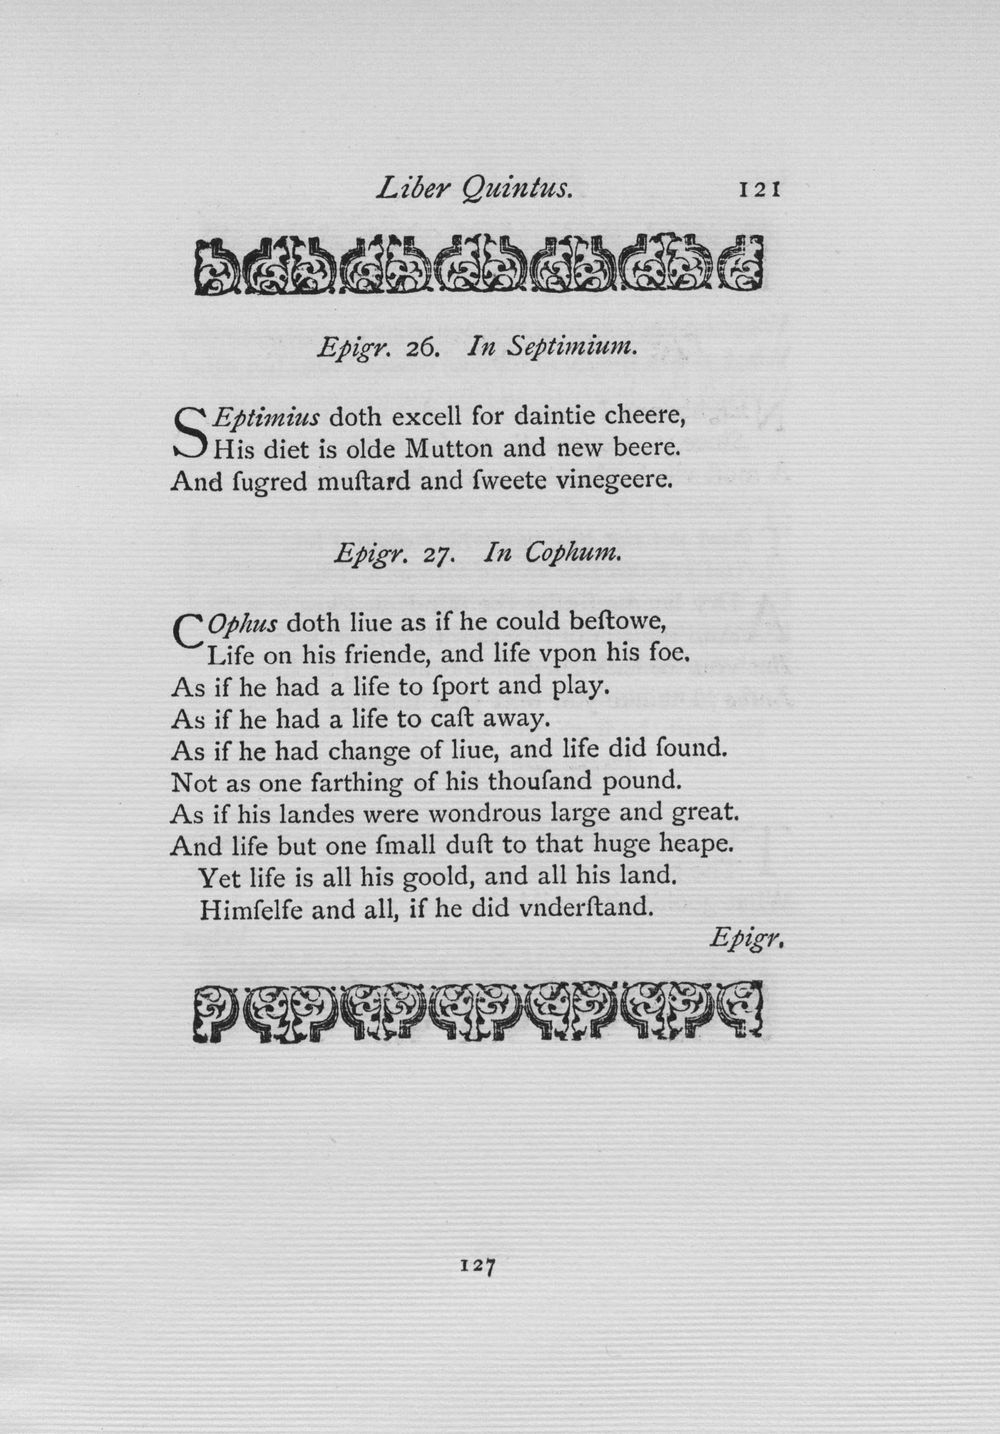 Liber Quintus. 121
Epigr. 26. In Septimium.
SEptimius doth excell for daintie cheere,
His diet is olde Mutton and new beere.
And ſugred muſtard and ſweete vinegeere.
Epigr. 27. In Cophum.
COphus doth liue as if he could beſtowe,
Life on his friende, and life vpon his foe.
As if he had a life to ſport and play.
As if he had a life to caſt away.
As if he had change of liue, and life did found.
Not as one farthing of his thouſand pound.
As if his landes were wondrous large and great.
And life but one ſmall duſt to that huge heape.
Yet life is all his goold, and all his land.
Himſelfe and all, if he did vnderſtand.
Epigr.
127